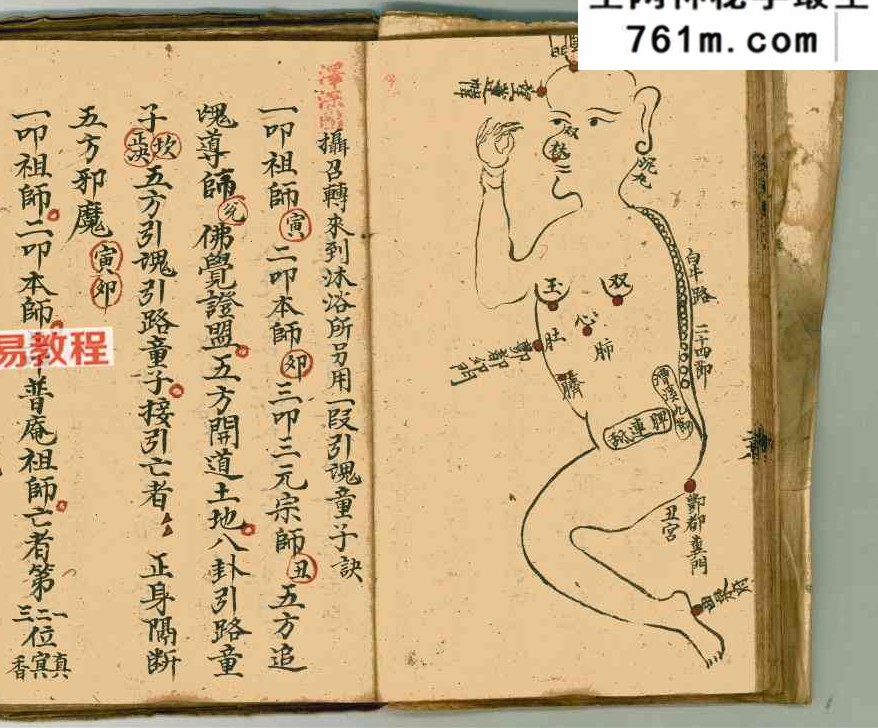 761m.com
易教程
白牛路
二十四節
双
玉
双
心
肚
肺
臍
酆都門
脾
連
酆都冥門
丑宮
攝召轉來到沐浴所另用一段引魂童子訣
一叩祖師寅二叩本師卯三叩三元宗師丑五方追
魂導師兊佛覺證盟五方開道土地八卦引路童
子坎五方引魂引路童子接引亡者正身隔斷
五方邪魔寅卯
一叩祖師二叩本師
普庵祖師亡者第一二三位真冥香